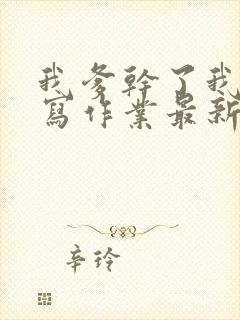 我爹幹了我
寫作業最新
辛玲